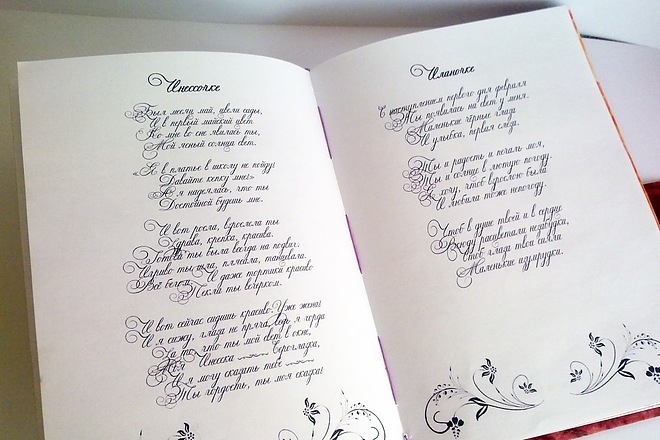 Инессочке
Был месяц май, цвели сады,
И в первый майский цвет
Ко мне во сне явилась ты,
Мой ясный солнца свет.
«Я в платье в школу не пойду!
Давайте кепку мне!»
А я надеялась, что ты
Достойной будешь мне.
И вот росла, взрослела ты
Здрава, крепка, красива.
Готова ты была всегда на подвиг.
Игриво ты шла, плясала, танцевала.
Всё бегом. И даже тортики красиво
Пекла ты вечерком.
И вот сейчас сидишь красиво. Уже жена!
И я сижу, глаза не пряча, ведь я горда
За то, что ты мой свет в окне,
Инеска Сероглазка,
И я могу сказать тебе
Ты гордость, ты моя сказка!
Иланочке
С наступлением первого дня февраля
Ты появилась на свет у меня.
Маленькие чёрные глаза
И улыбка, первая слеза.
Ты и радость и печаль моя,
Ты и солнце в лютую погоду.
Я хочу, чтоб взрослою была
И любила тоже непогоду.
Чтоб в душе твоей и в сердце
Всюду расцветали незабудки,
Чтоб глаза твои сияли
Маленькие изумрудки.